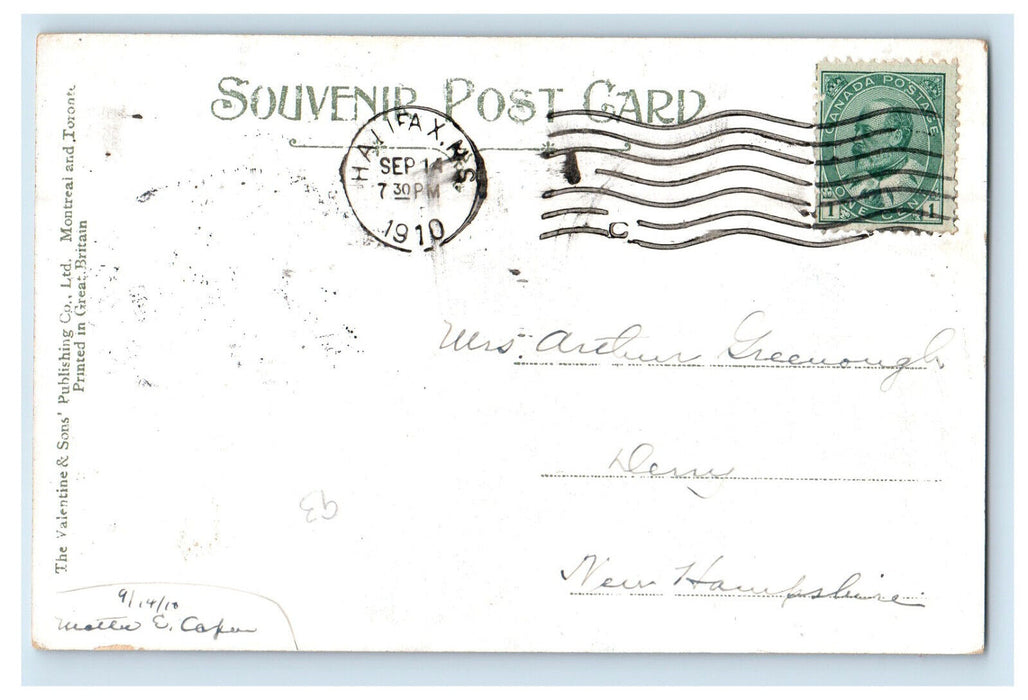 SOUVENIR POST CARD
CANADA POSTAGE
1 ONE CENT 1
HALIFAX, N.S.
SEP 14
7 30 PM
1910
C
The Valentine & Sons' Publishing Co., Ltd. Montreal and Toronto
Printed in Great Britain
Mrs. Arthur Greenough
Derry
New Hampshire
93
9/14/10
E. Capen